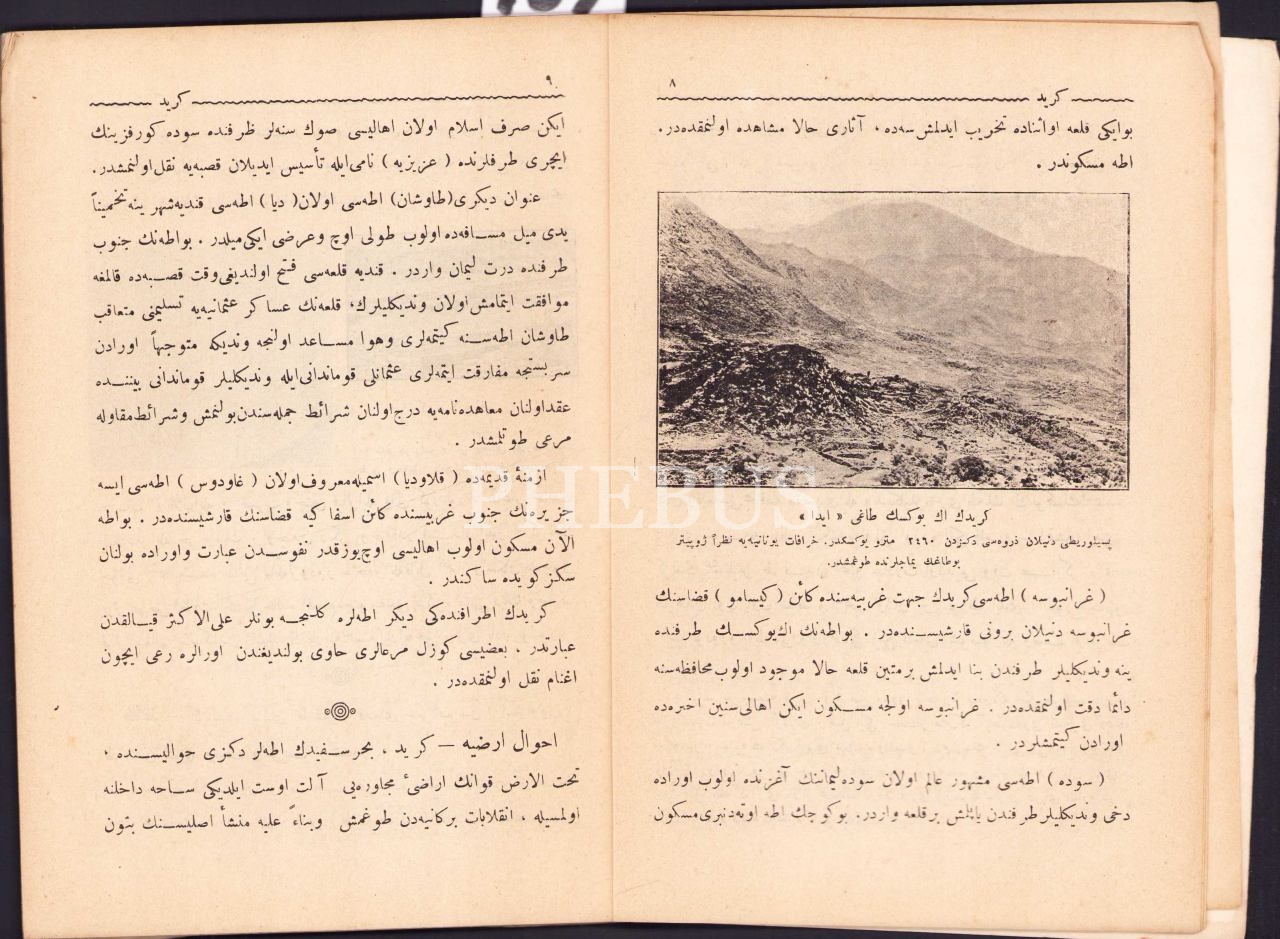 ٨
كريد
بوايكى قلعه اوائناده تخريب ايدلمش سه‌ده، آثارى حالا مشاهده اولنمقده‌در.
اطه مسكوندر.
كريدك اك يوكسك طاغى « ايدا »
پسيلوريطى دنيلان ذروه‌سى دكزدن ٢٤٦٠ مترو يوكسكدر. خرافات يونانيه‌يه نظراً ژوپيتر
بوطاغك يماجلرنده طوغمشدر.
( غرانبوسه ) اطه‌سى كريدك جهت غربيه‌سنده كائن ( كيسامو ) قضاسنك
غرانبوسه دنيلان برونى قارشيسنده‌در. بواطه‌نك اك يوكسك طرفنده
ينه ونديكليلر طرفندن بنا ايدلمش برمتين قلعه حالا موجود اولوب محافظه‌سنه
دائما دقت اولنمقده‌در. غرانبوسه اولجه مسكون ايكن اهالى سنين اخيره‌ده
اورادن كيتمشلردر.
( سوده ) اطه‌سى مشهور عالم اولان سوده ليماننك آغزنده اولوب اوراده
دخى ونديكليلر طرفندن ياپلمش برقلعه واردر. بوكوچك اطه اوته‌دنبرى مسكون
٩
كريد
ايكن صرف اسلام اولان اهاليسى صوك سنه‌لر ظرفنده سوده كورفزينك
ايچرى طرفلرنده ( عزيزيه ) نامى‌ايله تأسيس ايديلان قصبه‌يه نقل اولنمشدر.
عنوان ديكرى (طاوشان) اطه‌سى اولان (ديا) اطه‌سى قنديه شهرينه تخميناً
يدى ميل مسافه‌ده اولوب طولى اوچ وعرضى ايكى ميلدر. بواطه‌نك جنوب
طرفنده درت ليمان واردر. قنديه قلعه‌سى فتح اولنديغى وقت قصبه‌ده قالمغه
موافقت ايتمامش اولان ونديكليلرك، قلعه‌نك عساكر عثمانيه‌يه تسليمنى متعاقب
طاوشان اطه‌سنه كيتمه‌لرى وهوا مساعد اولنجه ونديكه متوجهاً اورادن
سربستجه مفارقت ايتمه‌لرى عثمانلى قوماندانى‌ايله ونديكليلر قوماندانى بيننده
عقد اولنان معاهده‌نامه‌يه درج اولنان شرائط جمله‌سندن بولنمش وشرائط مقاوله
مرعى طوتلمشدر.
ازمنۀ قديمه‌ده ( قلاوديا ) اسميله معروف اولان ( غاودوس ) اطه‌سى ايسه
جزيره‌نك جنوب غربيسنده كائن اسفاكيه قضاسنك قارشيسنده‌در. بواطه
الآن مسكون اولوب اهاليسى اوچ يوزقدر نفوسدن عبارت واوراده بولنان
سكز كويده ساكندر.
كريدك اطرافنده‌كى ديكر اطه‌لره كلنجه بونلر على الاكثر قيالقدن
عبارتدر، بعضيسى كوزل مرعالرى حاوى بولنديغندن اورالره رعى ايچون
اغنام نقل اولنمقده‌در.
احوال ارضيه — كريد، بحرسفيدك اطه‌لر دكزى حواليسنده،
تحت الارض قوانك اراضئ مجاوره‌يى آلت اوست ايلديكى ساحه داخلنه
اولمسيله، انقلابات بركانيه‌دن طوغمش وبناءً عليه منشأ اصليسنك بتون
PHEBUS